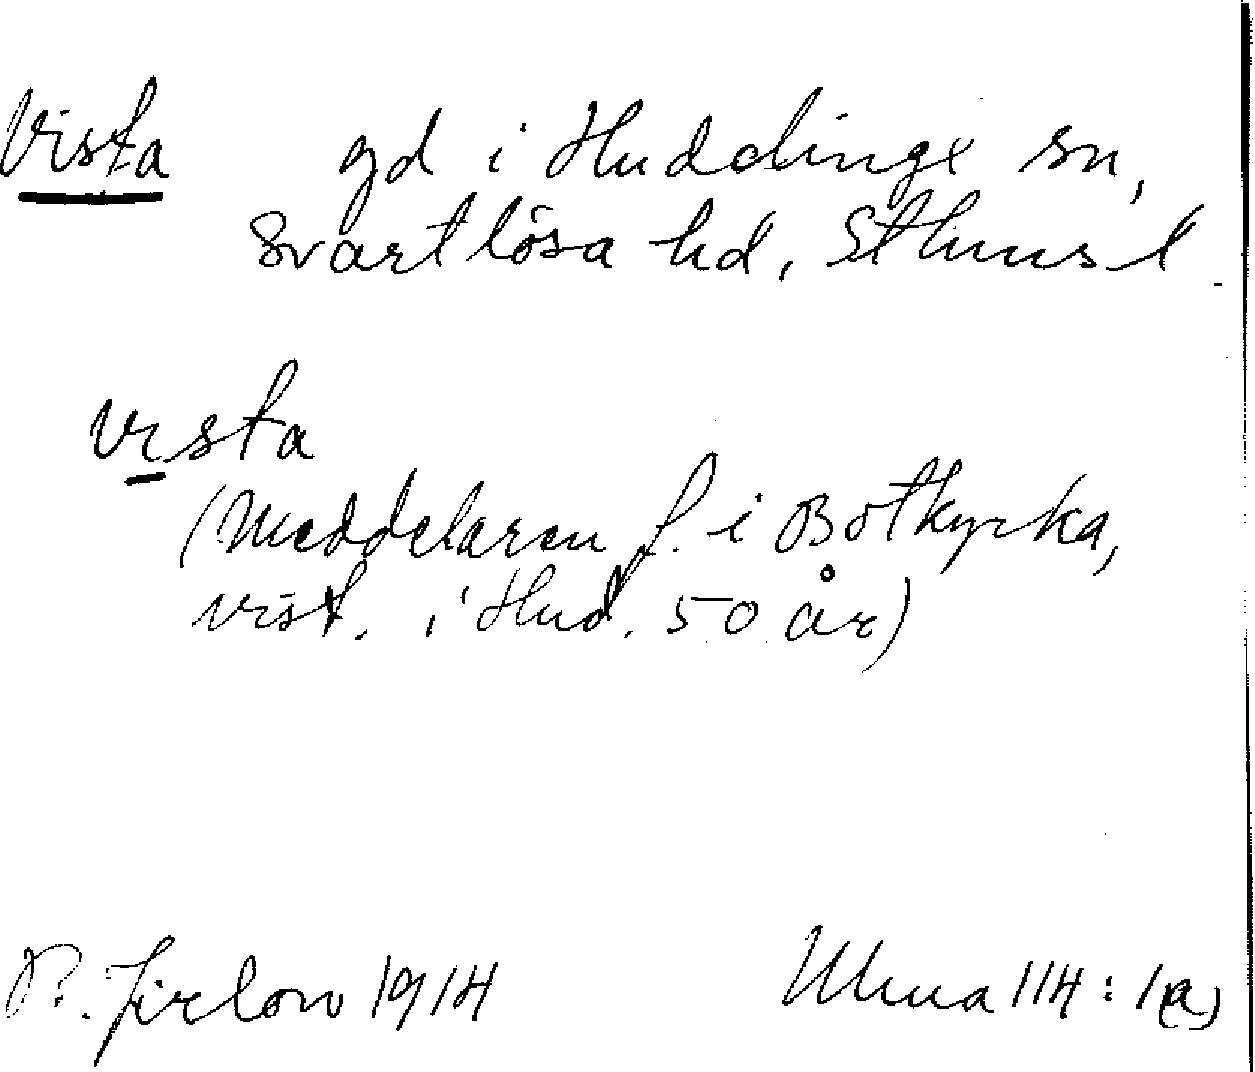 Vista gd i Huddinge sn,
Svartlösa hd, Sthms l.
vista
(Meddelaren f. i Botkyrka,
vist. i Hud. 50 år)
R. Jirlow 1914 Ulma 114: 1(a)